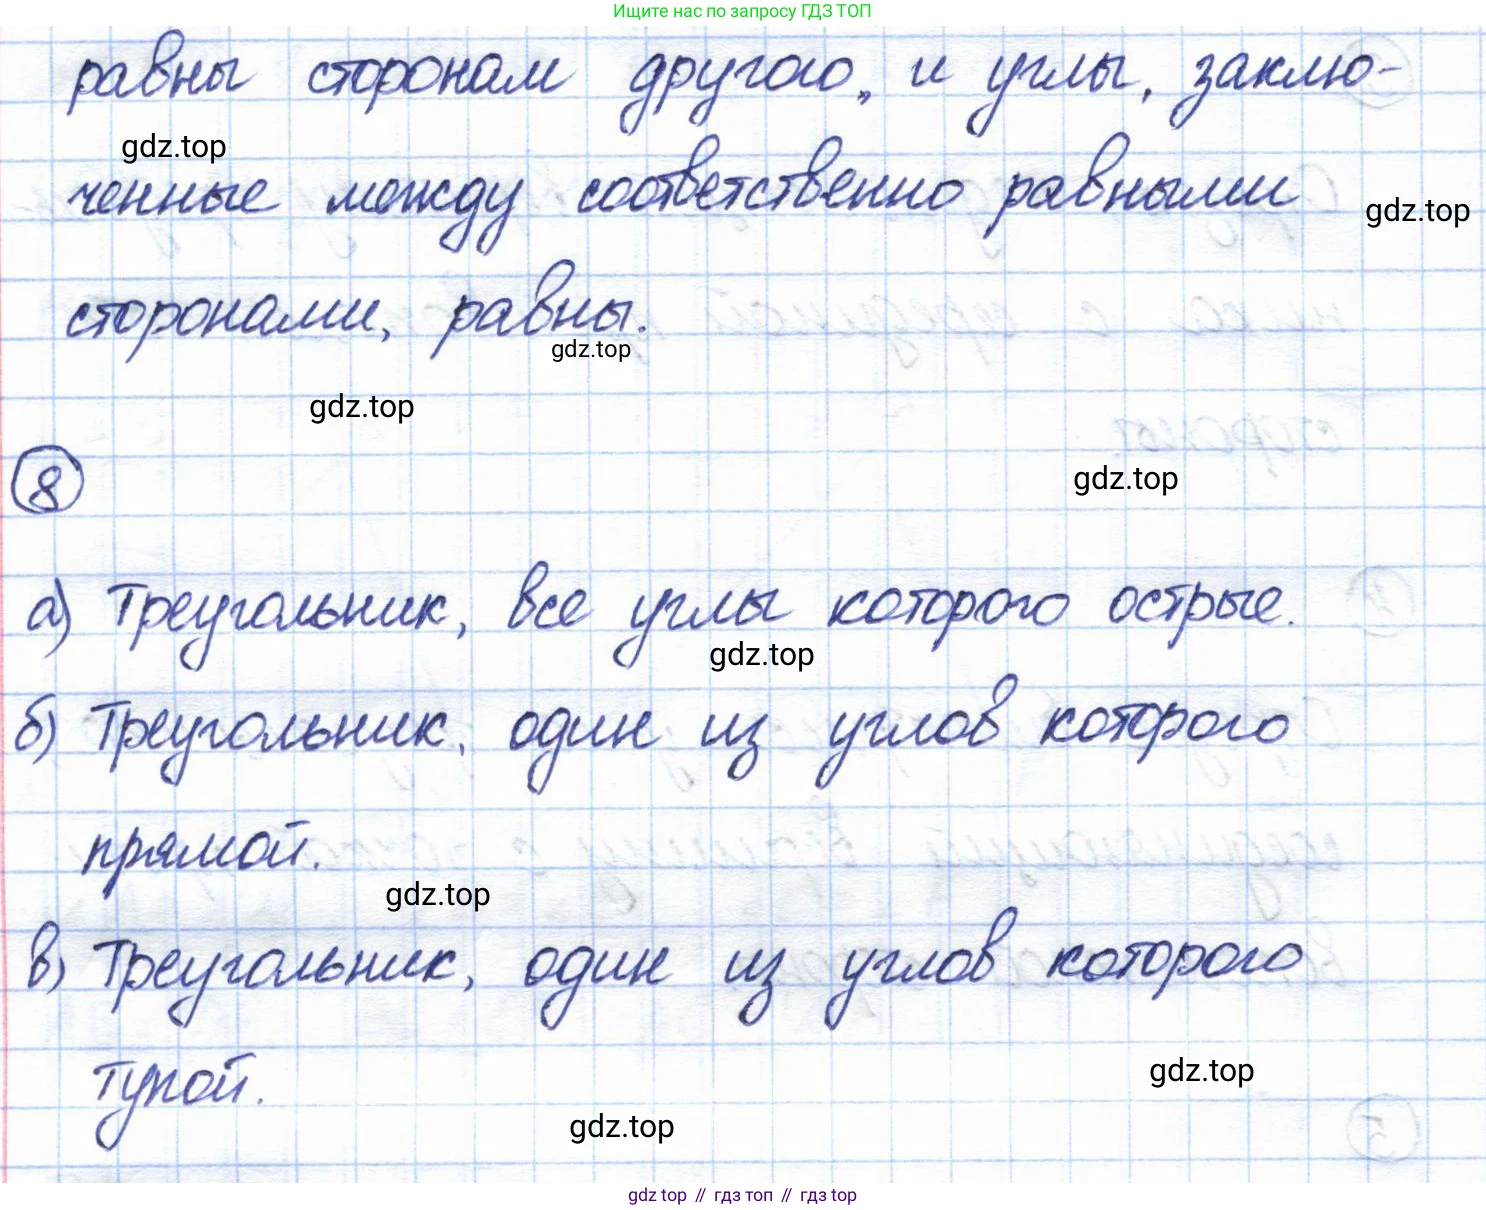 Ищите нас по запросу ГДЗ ТОП
равны сторонам другого, и углы, заклю-
gdz.top
ченные между соответственно равными
gdz.top
сторонами, равны.
gdz.top
gdz.top
8
gdz.top
а) Треугольник, все углы которого острые.
gdz.top
б) Треугольник, один из углов которого
прямой.
gdz.top
в) Треугольник, один из углов которого
тупой.
gdz.top
gdz.top
gdz top // гдз топ // гдз top